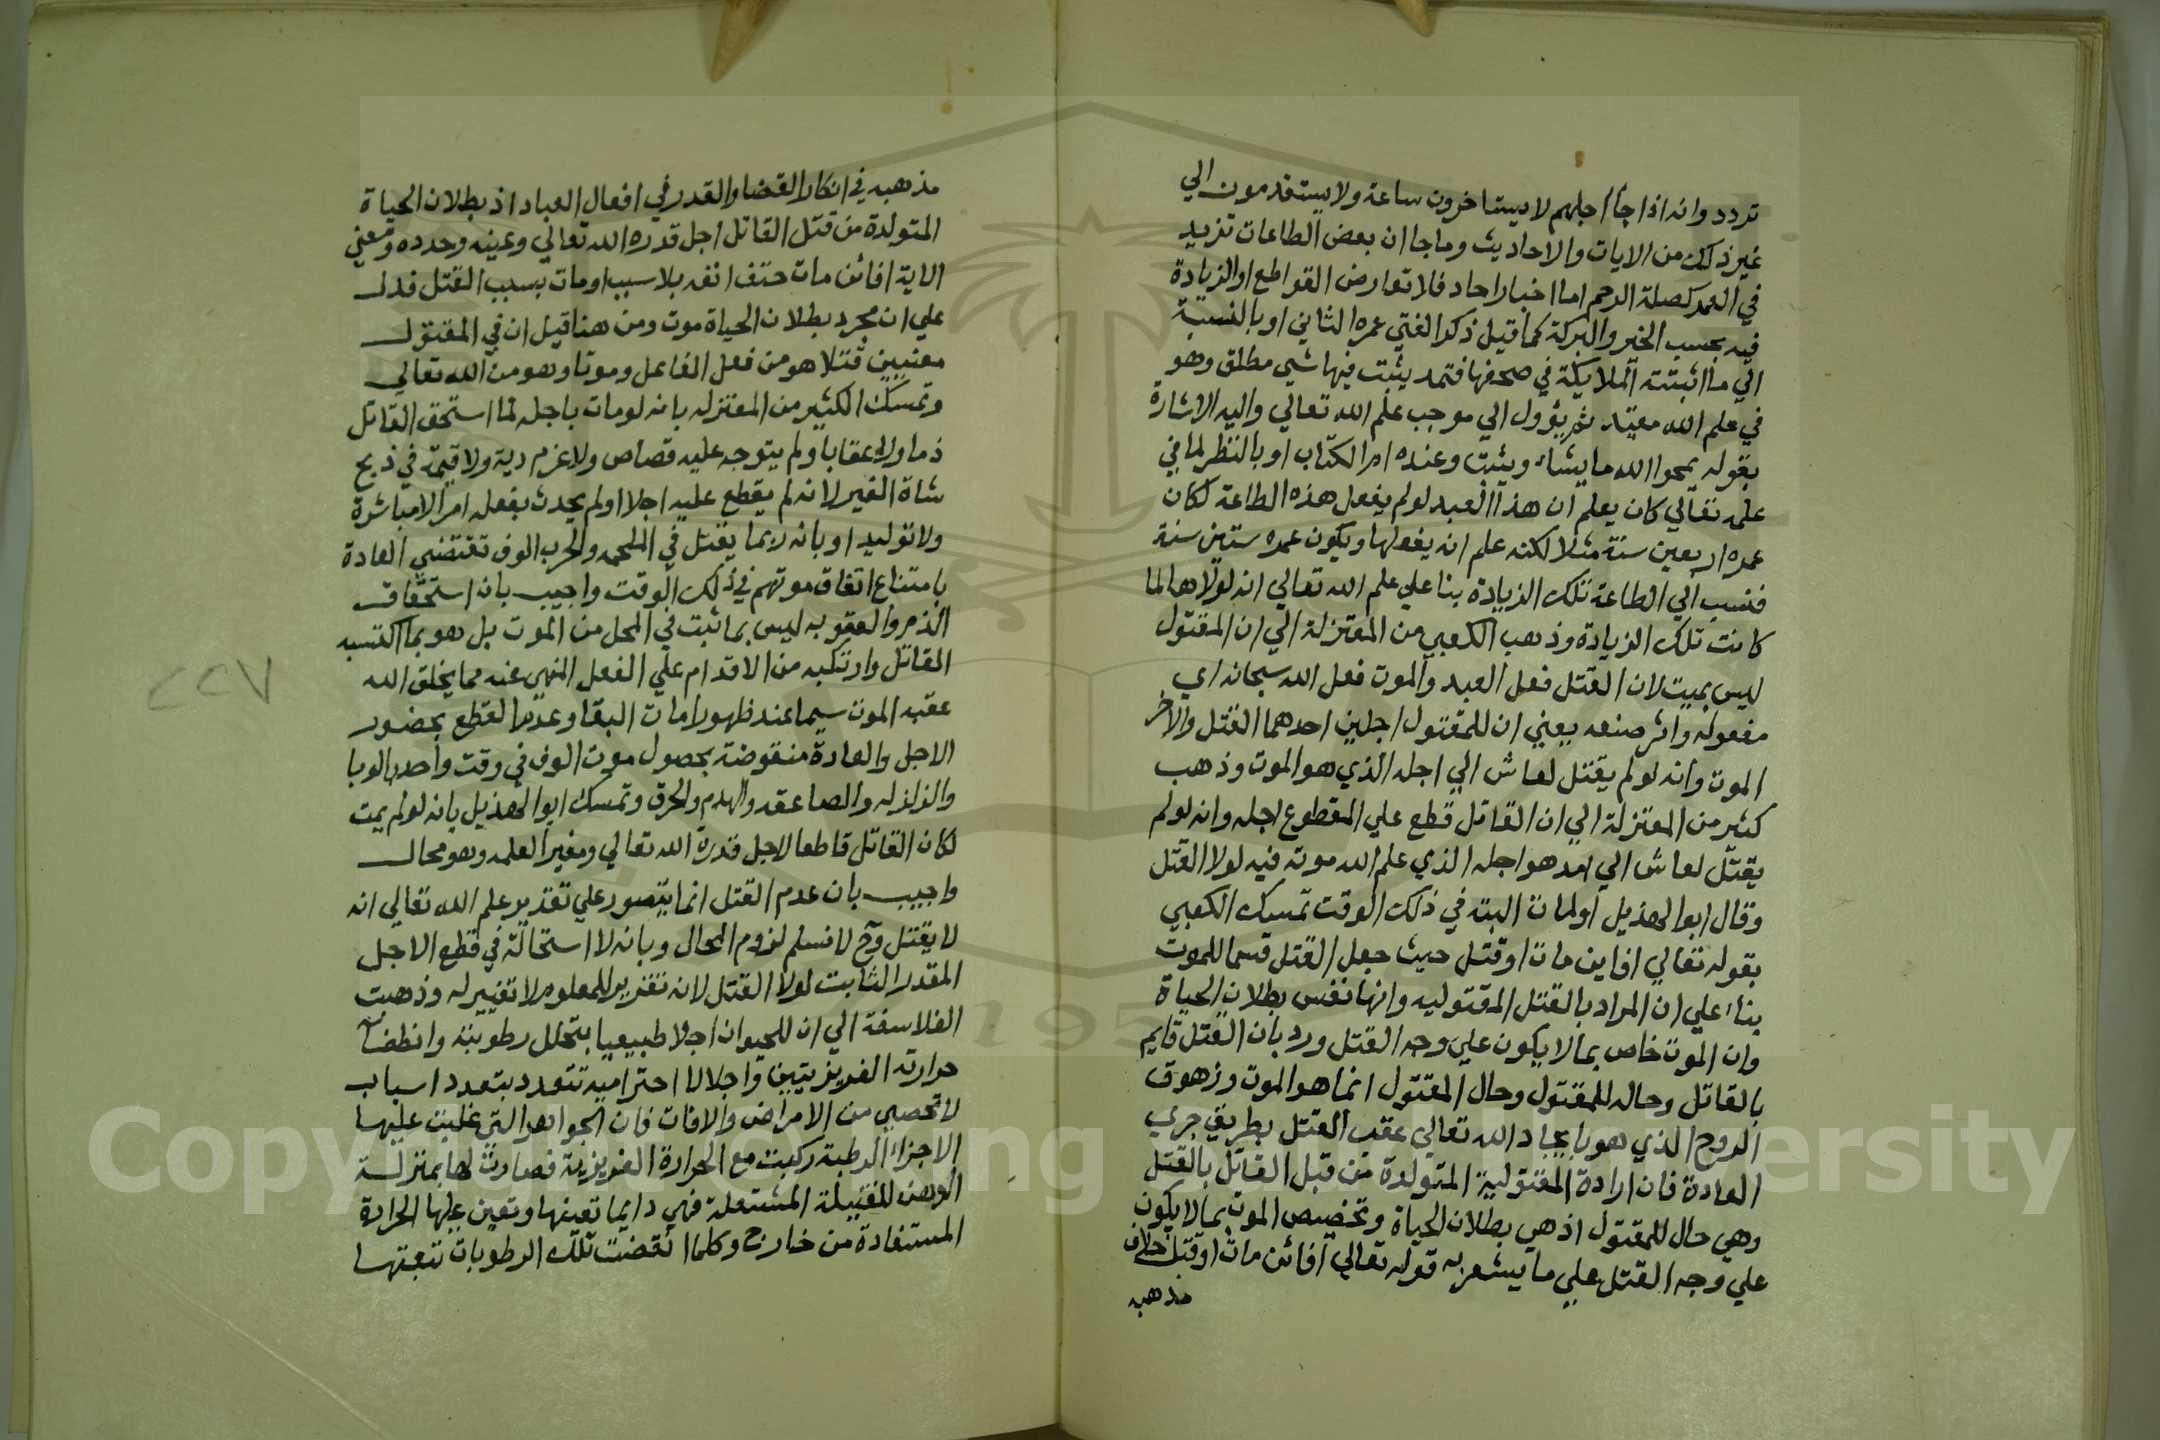 تردد وانه اذا جاٱ اجلهم لا يستاخرون ساعة ولا يستقدمون الي
غير ذلك من الايات والاحاديث وماجا ان بعض الطاعات تزيد
في العمر كصلة الرحم اما اخبار احاد فلا تعارض القواطع او الزيادة
فيه بحسب الخير والبركة كما قيل ذكر الفتي عمره الثاني او بالنسبة
الي ما اثبتته الملايكة في صحفها فقد يثبت فيها شي مطلق وهو
في علم الله مقيد ثم يؤول الي موجب علم الله تعالي واليه الاشارة
بقوله يمحوا الله ما يشاء ويثبت وعنده ام الكتاب او بالنظر لما في
علمه تعالي كان يعلم ان هذا العبد لو لم يفعل هذه الطاعة لكان
عمره اربعين سنة مثلا لكنه علم انه يفعلها ويكون عمره ستين سنة
فنسب الي الطاعة تلك الزيادة بنا علي علم الله تعالي انه لولاها لما
كانت تلك الزيادة وذهب الكعبي من المعتزلة الي ان المقتول
ليس بميت لان القتل فعل العبد والموت فعل الله سبحانه اي
مفعوله واثر صنعه يعني ان للمقتول اجلين احدهما القتل والاخر
الموت وانه لو لم يقتل لعاش الي اجله الذي هو الموت وذهب
كثير من المعتزلة الي ان القاتل قطع علي المقطوع اجله وانه لو لم
يقتل لعاش الي امد هو اجله الذي علم الله موته فيه لولا القتل
وقال ابو الهذيل لو لمات البته في ذلك الوقت تمسك الكعبي
بقوله تعالي افاين مات او قتل حيث جعل القتل قسما للموت
بناء علي ان المراد بالقتل المقتوليه وانها نفس بطلان الحياة
وان الموت خاص بما لا يكون علي وجه القتل ورد بان القتل قايم
بالقاتل وحاله للمقتول وحال المقتول انما هو الموت وزهوق
الروح الذي هو بايجاد الله تعالي عقب القتل بطريق جري
العادة فان ارادة المقتولية المتولدة من قبل القاتل بالقتل
وهي حال للمقتول اذ هي بطلان الحياة وتخصيص الموت بما لا يكون
علي وجه القتل علي ما يشعر به قوله تعالي افائن مات او قتل خلاف
مذهبه
مذهبه في انكار القضا والقدر في افعال العباد اذ بطلان الحياة
المتولدة من قتل القاتل اجل قدره الله تعالي وعينه وحدده ومعني
الاية افائن مات حتف انفه بلا سبب او مات بسبب القتل فدل
علي ان مجرد بطلان الحياة موت ومن هنا قيل ان في المقتول
معنيين قتلا هو من فعل الفاعل وموتا وهو من الله تعالي
وتمسك الكثير من المعتزله بانه لو مات باجله لما استحق القاتل
ذما ولا عقابا ولم يتوجه عليه قصاص ولا غرم دية ولا قيمة في ذبح
شاة الغير لانه لم يقطع عليه اجلا ولم يحدث بفعله امرا لا مباشرة
ولا توليدا وبانه ربما يقتل في الملحمه والحرب الوف تقتضي العادة
بامتناع اتفاق موتهم في ذلك الوقت واجيب بان استحقاق
الذم والعقوبه ليس بما ثبت في المحل من الموت بل هو بما اكتسبه
القاتل وارتكبه من الاقدام علي الفعل المنهي عنه مما يخلق الله
عقبه الموت سيما عند ظهور امارات البقا وعدم القطع بحضور
الاجل والعادة منقوضة بحصول موت الوف في وقت واحد بالوبا
والزلزله والصاعقه والهدم والحرق وتمسك ابو الهذيل بانه لو لم يمت
لكان القاتل قاطعا لاجل قدره الله تعالي ومغيرا لعلمه وهو محال
واجيب بان عدم القتل انما يتصور علي تقدير علم الله تعالي انه
لا يقتل وح لا نسلم لزوم المحال وبانه لا استحالة في قطع الاجل
المقدر الثابت لولا القتل لانه تقرير للمعلوم لا تغيير له وذهبت
الفلاسفة الي ان للحيوان اجلا طبيعيا بتحلل رطوبته وانطفاء
حرارته الغريزيتين واجالا احتراميه تتعدد بتعدد اسباب
لا تحصي من الامراض والافات فان الجواهر التي غلبت عليها
الاجزاء الرطبة ركبت مع الحرارة الغريزية فصارت لها بمنزلة
الدهن للفتيلة المشتعلة فهي دايما تعينها وتعين عليها الحرارة
المستفادة من خارج وكلما انقضت تلك الرطوبات تتبعتها
٢٢٧
Copyright © King Saud University
195